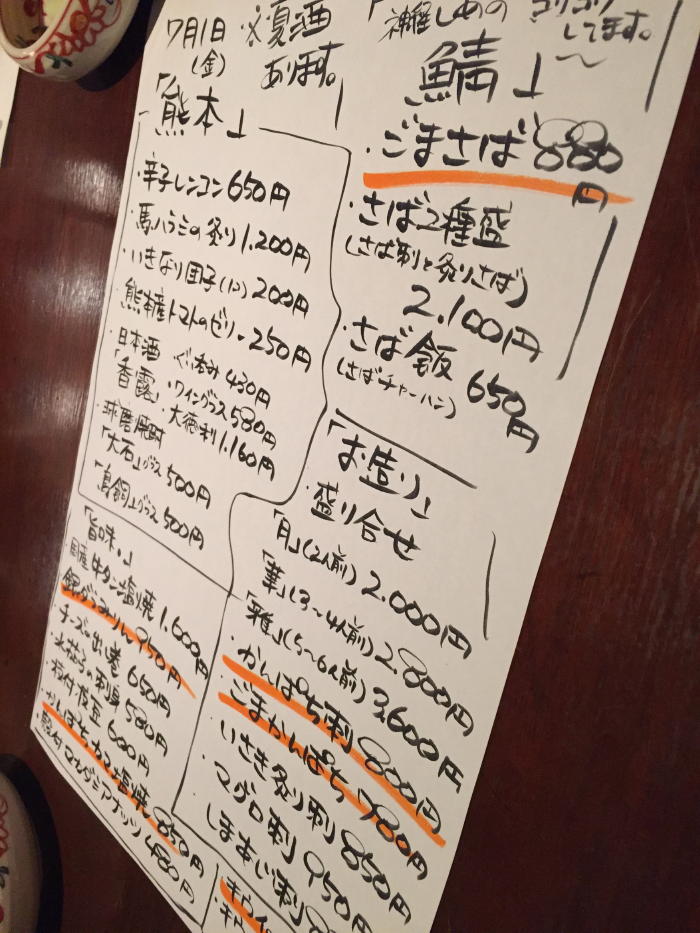 「神経じめの コリコリ
してます。〜
鯖」
・ごまさば 880円
・さば2種盛
(さば刺と炙りさば)
2.100円
・さば飯 650円
(さばチャーハン)
「お造り」
・盛り合せ
「月」(2人前) 2.000円
「華」(3〜4人前) 2.800円
「雅」(5〜6人前) 3.600円
・かんぱち刺 800円
・ごまかんぱち 980円
・いさき炙り刺 850円
・マグロ刺 950円
・しまあじ刺
7月1日
(金)
※夏酒
あります。
「熊本」
・辛子レンコン 650円
・馬ハラミの炙り 1.200円
・いきなり団子(1ヶ) 200円
・熊本産トマトのゼリー 250円
・日本酒 ぐい呑み 430円
「香露」・ワイングラス 580円
・大徳利 1.160円
・球磨焼酎
「大石」グラス 500円
「鳥飼」グラス 500円
「旨味。」
・国産牛タン塩焼 1.600円
・銀だらみりん 950円
・チーズ出し巻 650円
・水茄子の刺身 580円
・殻付枝豆 600円
・かんぱちカマ塩焼 850円
・殻付マカダミアナッツ 480円